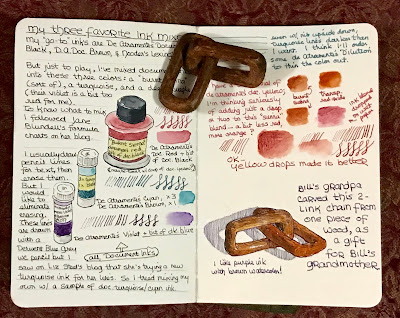 my three favorite ink mixes
my "go-to" inks are De Atramentis Document
Black, D.A. Doc. Brown, & Noodler's Lexington
But just to play, I've mixed document inks
into these three colors: a "burnt sienna"
(sort of), a turquoise, and a deep purple.
(their violet is a bit too
red for me).
To know what to mix,
I followed Jane
Blundell's formula
charts on her blog.
De Atramentis
Doc. Red + bit
of doc. Black
I usually draw
pencil lines
for text, then
erase them.
But I
would like to
eliminate
erasing.
These lines
are drawn
with a
Derwent Blue Grey
wc pencil but I
De Atramentis Cyan, x 3
De Atramentis Brown, x 1
De Atramentis Violet + bit of doc blue
all Document inks
saw on Liz Steel's blog that she's trying a new
turquoise ink for her lines. So I tried mixing my
own w/ a sample of doc. turquoise/cyan ink.
even w/ nib upside down,
turquoise lines darker than
I want. I think I'll order
some De Atramentis Dilution
to thin the color out.
de Atramentis doc. yellow,
I'm thinking seriously
of adding just a drop
or two to this "burnt sienna"
blend... a bit less red,
more orange?
burnt sienna
transp. red oxide
OK.
yellow drops made it better
Bill's grandpa
carved this 2-
link chain from
one piece of
wood, as
a gift
for Bill's
grandmother
I like purple ink
with brown watercolor!